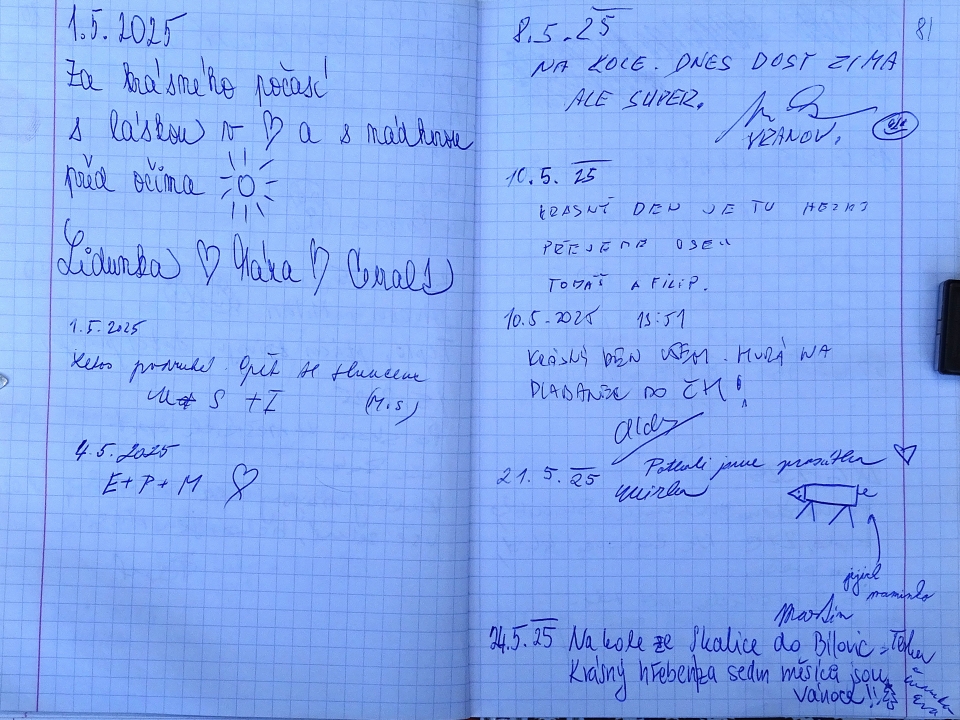 1.5.2025
Za krásného počasí
s láskou v ♡ a s nádhernou
před očima
Lidunka ♡ Kája ♡
1.5.2025
Opět se
S + I (M.S)
4.5.2025
E + P + M ♡
81
8.5.25
NA KOLE. DNES DOST ZIMA
ALE SUPER.
VRANOV.
10.5.25
KRÁSNÝ DEN JE TU HEZKY
PŘEJEME VŠEM
TOMÁŠ A FILIP.
10.5.2025 13:51
KRÁSNÝ DEN VŠEM. HURÁ NA
DO ČH!
21.5.25 Potkali jsme prasátka ♡
jejich
maminka
Martin
24.5.25 Na kole ze Skalice do Bílovic
Krásný hřeben, za sedm měsíců jsou
Vánoce!!
Eva